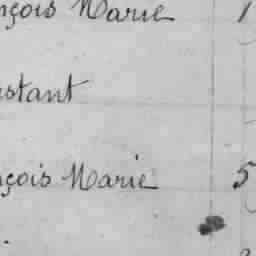 nçois Marie 1
nstant
nçois Marie 5